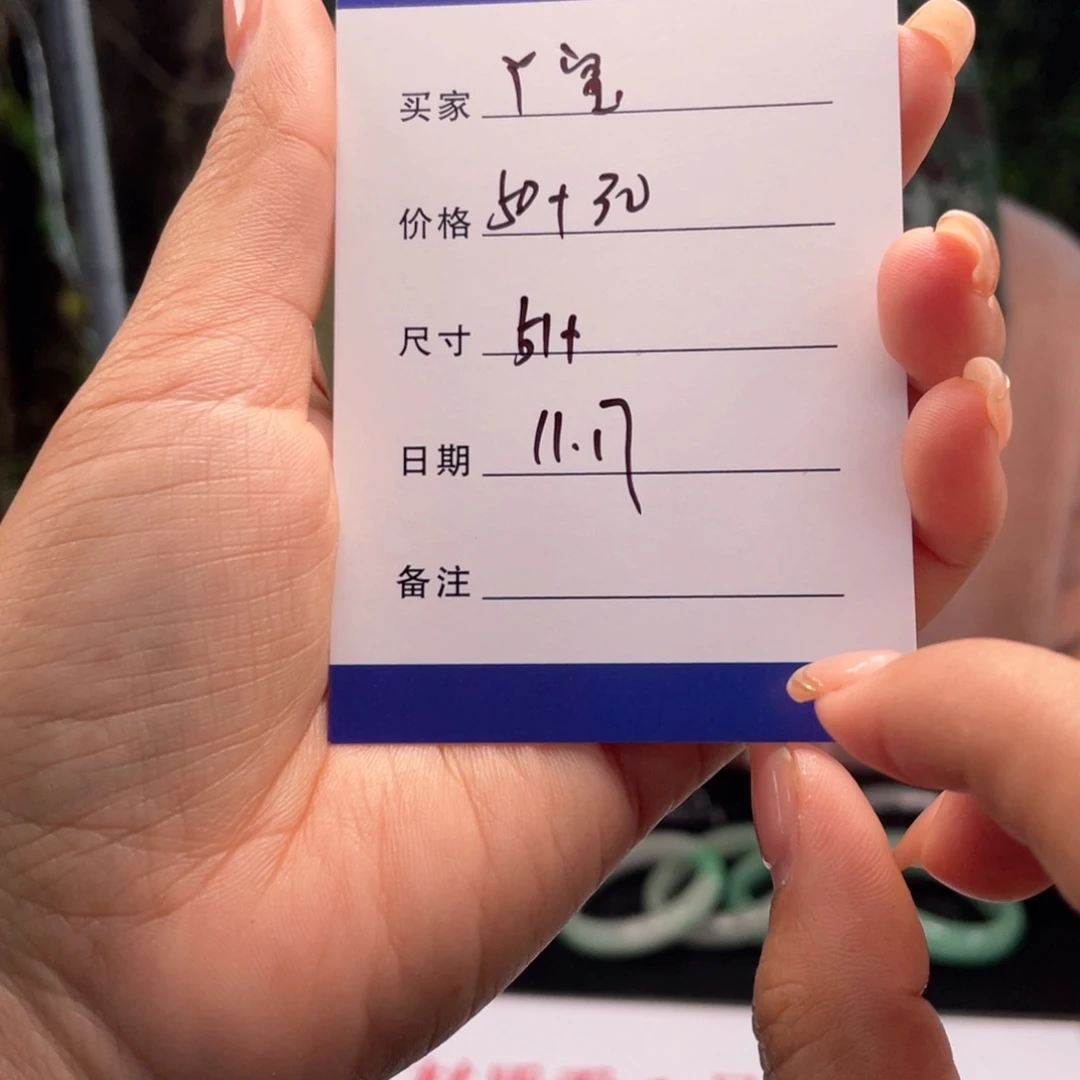 买家 丫宝
价格 50+30
尺寸 51+
日期 11.17
备注